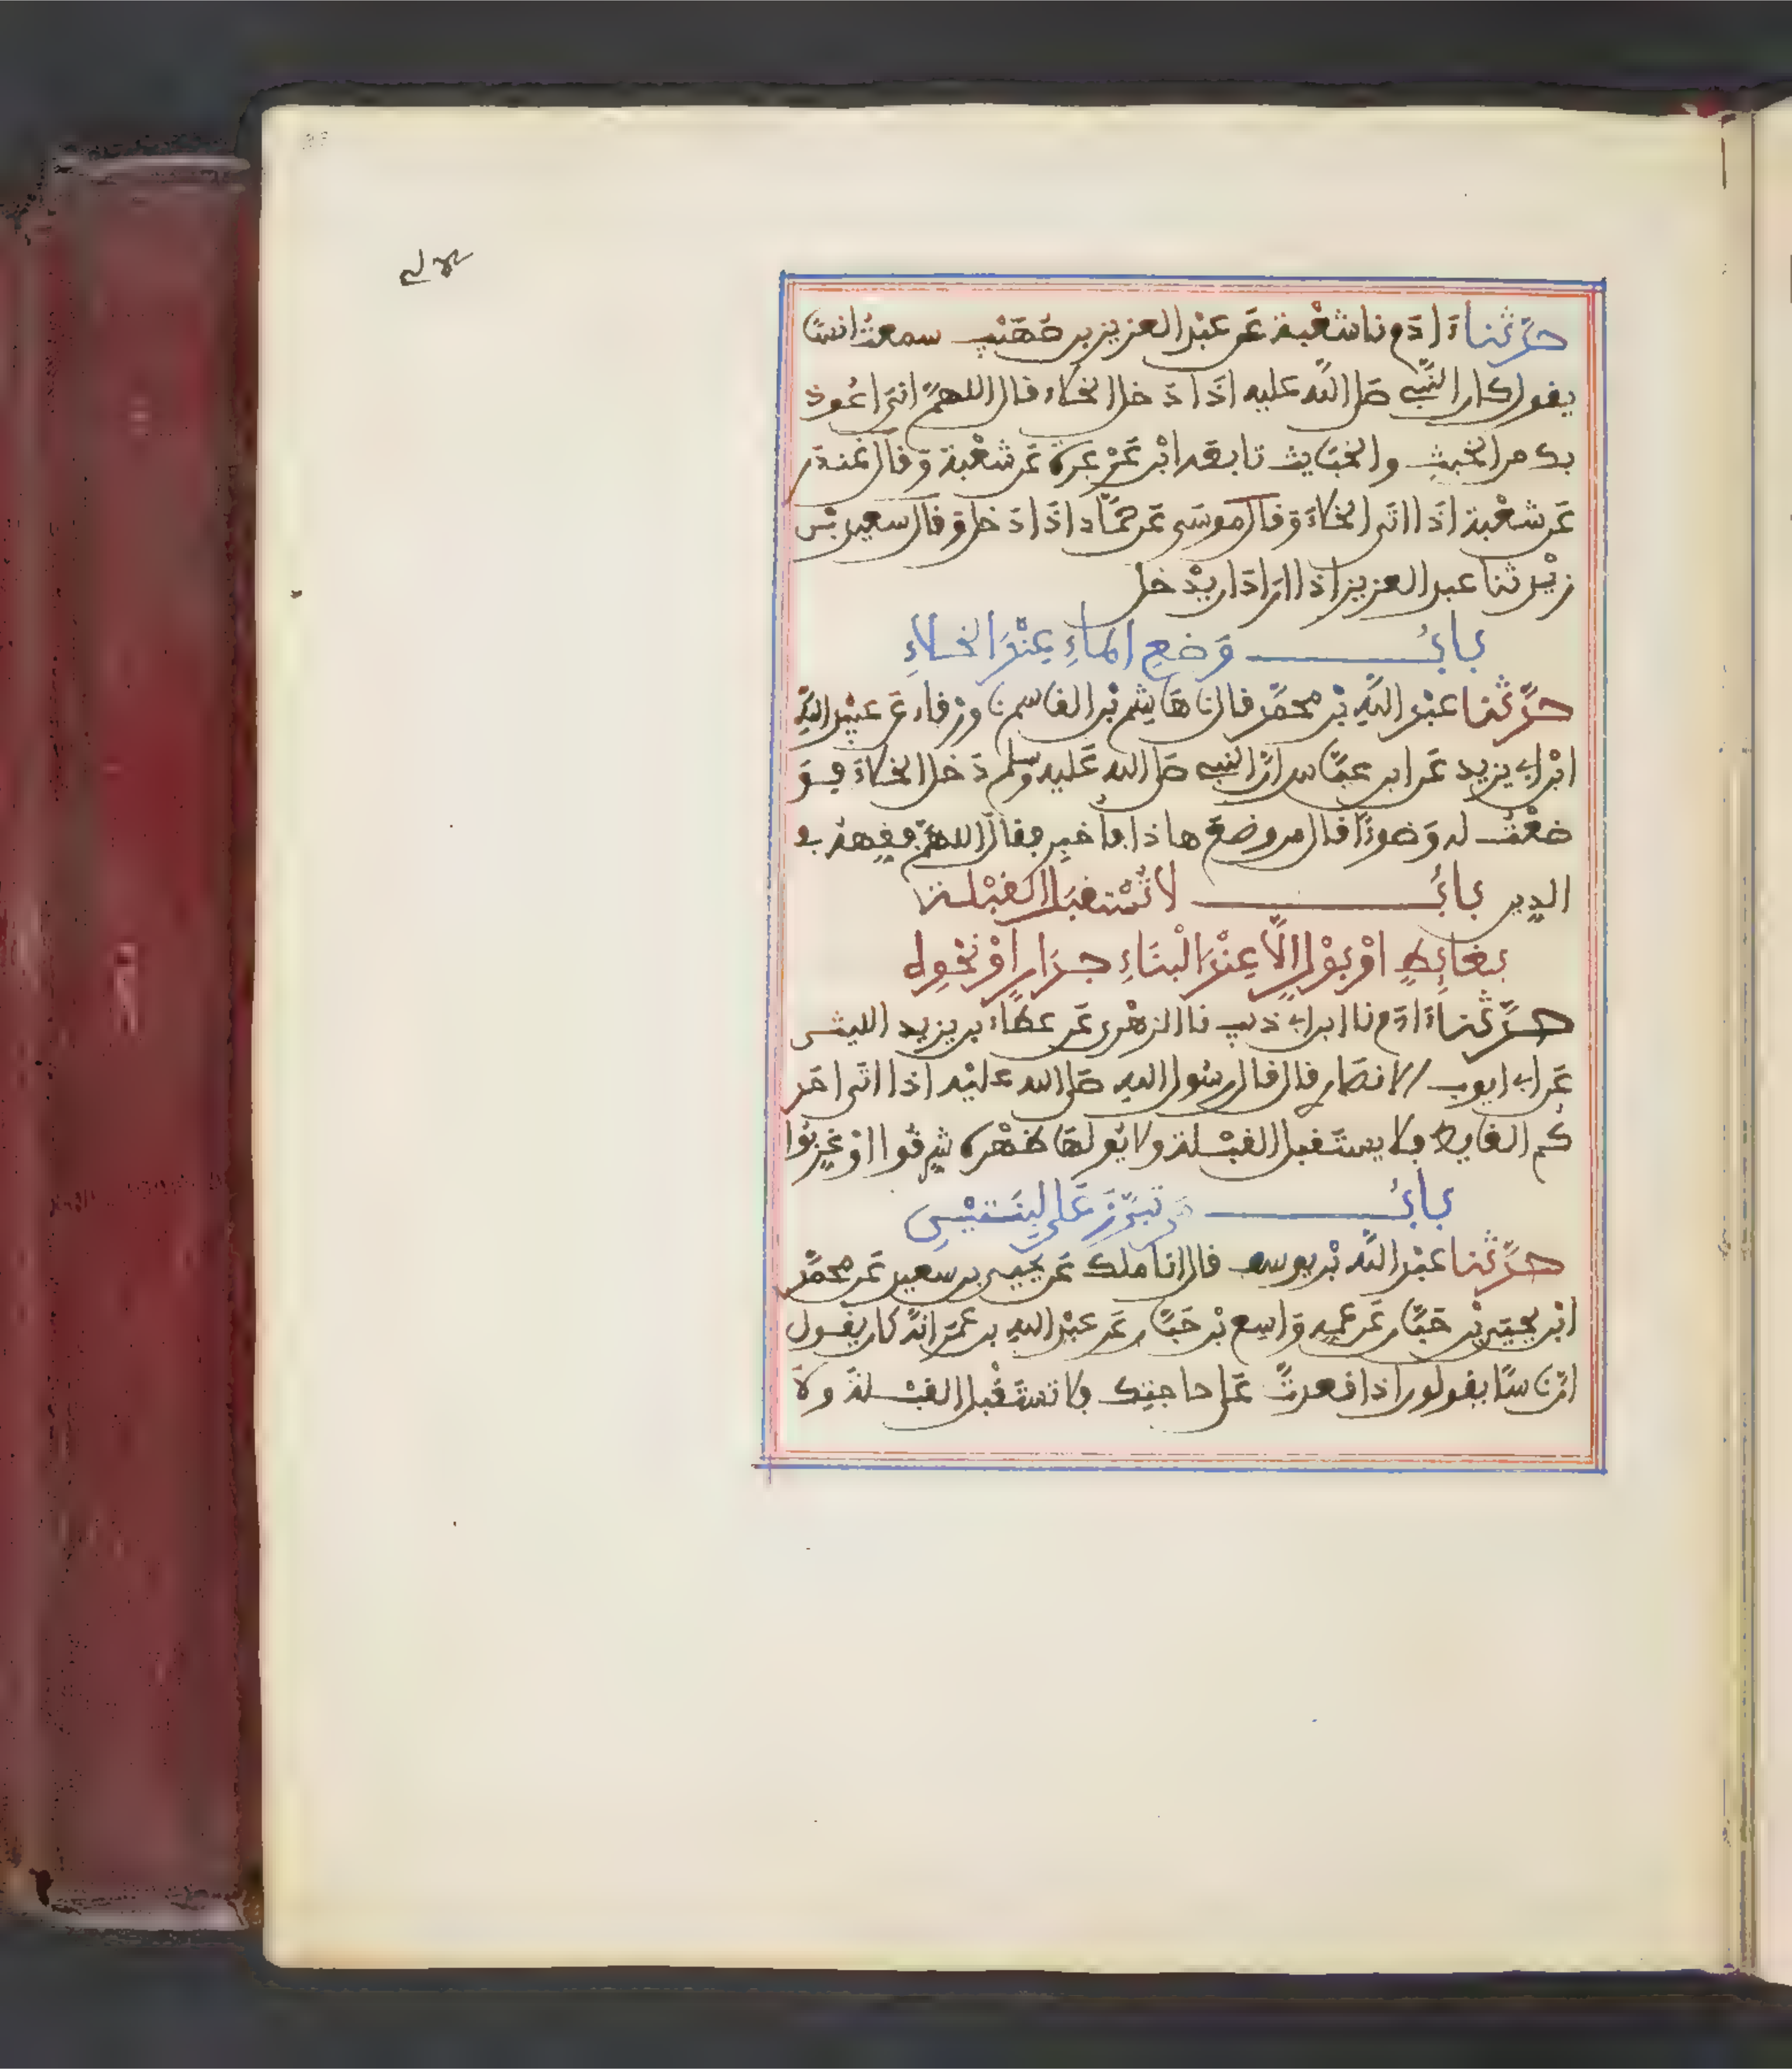 حدثنا ءادم نا شعبة عن عبد العزيز بن صهيب سمعت انسا
يقول كان النبي صلى الله عليه اذا دخل الخلاء قال اللهم اني اعوذ
بك من الخبث والخبايث تابعه ابن عرعرة عن شعبة وقال غندر
عن شعبة اذا اتى الخلاء وقال موسى عن حماد اذا دخل وقال سعيد بن
زيد ثنا عبد العزيز اذا اراد ان يدخل
باب وضع الماء عند الخلاء
حدثنا عبد الله بن محمد قال نا هاشم بن القاسم نا ورقاء عن عبيد الله
ابن ابي يزيد عن ابن عباس ان النبي صلى الله عليه وسلم دخل الخلاء فو
ضعت له وضوءا قال من وضع هاذا فأخبر فقال اللهم فقهه في
الدين باب لا تستقبل القبلة
بغائط او بول الا عند البناء جدار او نحوه
حدثنا ءادم نا ابن ابي ذيب نا الزهري عن عطاء بن يزيد الليثي
عن ابي ايوب الانصاري قال قال رسول الله صلى الله عليه اذا اتى احد
كم الغايط فلا يستقبل القبلة ولا يولها ظهره شرقوا او غربوا
باب من تبرز على لبنتين
حدثنا عبد الله بن يوسف قال انا ملك عن يحيى بن سعيد عن محمد
ابن يحيى بن حبان عن عمه واسع بن حبان عن عبد الله بن عمر انه كان يقول
ان ناسا يقولون اذا قعدت على حاجتك فلا تستقبل القبلة ولا